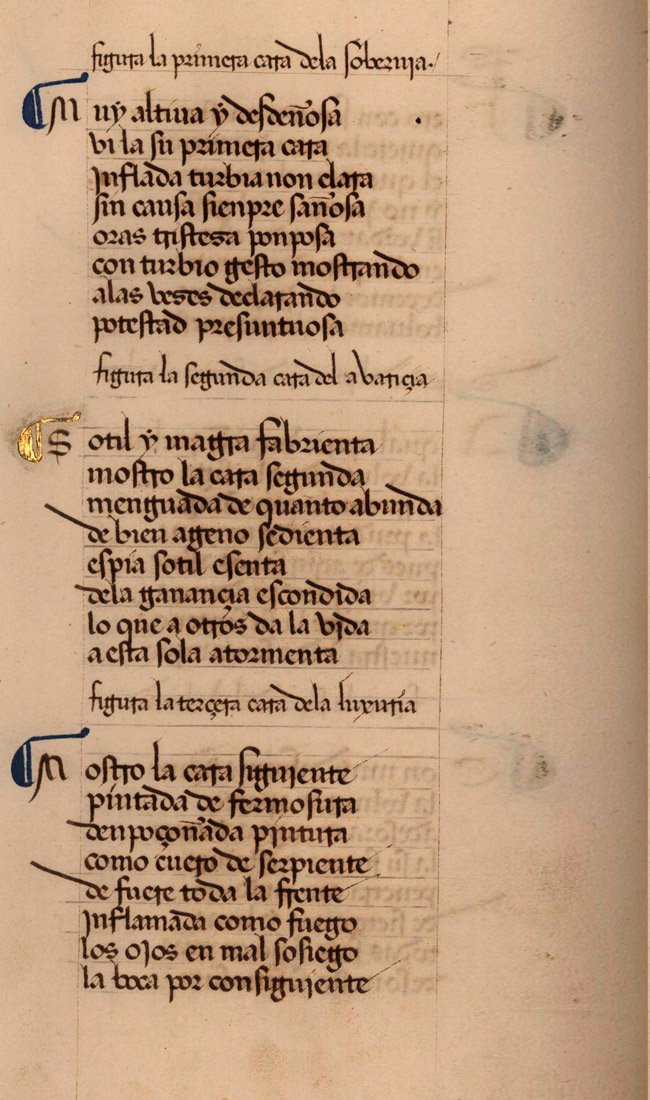 figura la primera cara dela soberuia.
Muy altiua y desdeñosa
vi la su primera cara
inflada turbia non clara
sin causa sienpre sañosa
oras tristesa ponposa
con turbio gesto mostrando
alas veses declarando
potestad presuntuosa
figura la segunda cara del avariçia
Sotil y magra fabrienta
mostro la cara segunda
menguada de quanto abunda
de bien ageno sedienta
espia sotil esenta
dela ganançia escondida
lo que a otros da la vida
a esta sola atormenta
figura la terçera cara dela luxuria
Mostro la cara siguiente
pintada de fermosura
denpoçoñada pintura
como cuero de serpiente
de fuere toda la frente
inflamada como fuego
los ojos en mal sosiego
la boca por consiguiente